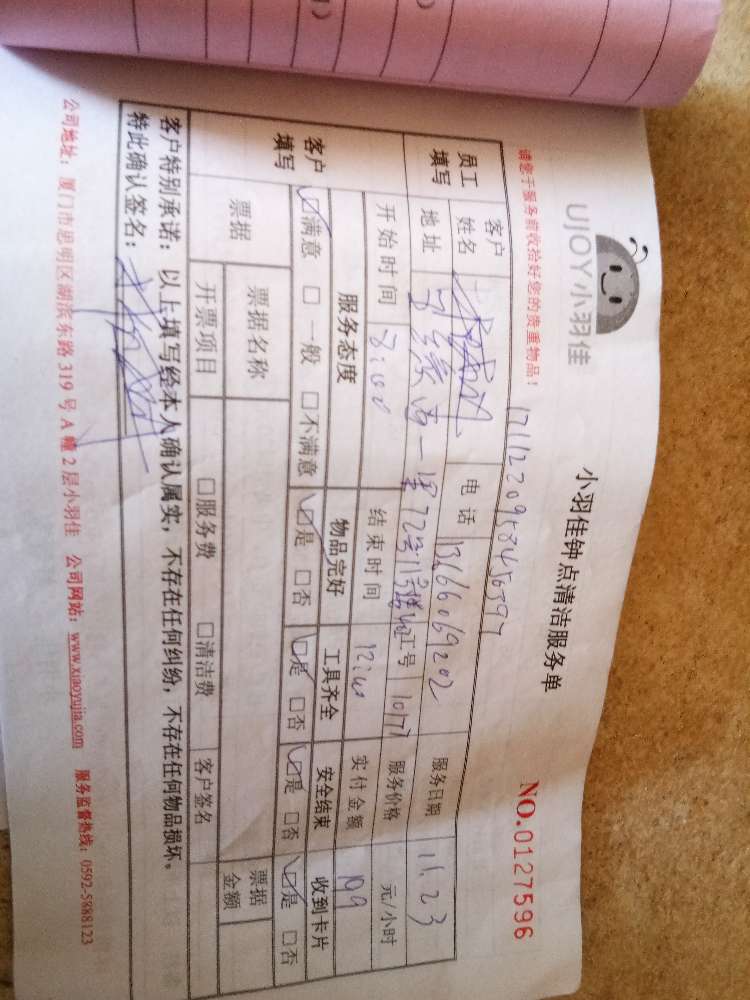 UJOY小羽佳
小羽佳钟点清洁服务单
NO.0127596
请您于服务前收拾好您的贵重物品！
员工填写
客户姓名
电话 13666069202
服务日期 11.23
地址
工号 10171
服务价格 元/小时
开始时间 8:00
结束时间 12:00
实付金额 199
客户填写
服务态度 物品完好 工具齐全 安全结束 收到卡片
☑满意 □一般 □不满意 ☑是 □否 ☑是 □否 ☑是 □否 ☑是 □否
票据
票据名称
票据金额
开票项目 □服务费 □清洁费 客户签名
客户特别承诺：以上填写经本人确认属实，不存在任何纠纷，不存在任何物品损坏。
特此确认签名：
公司地址：厦门市思明区湖滨东路319号A幢2层小羽佳 公司网站：www.xiaoyujia.com 服务监督热线：0592-5888123